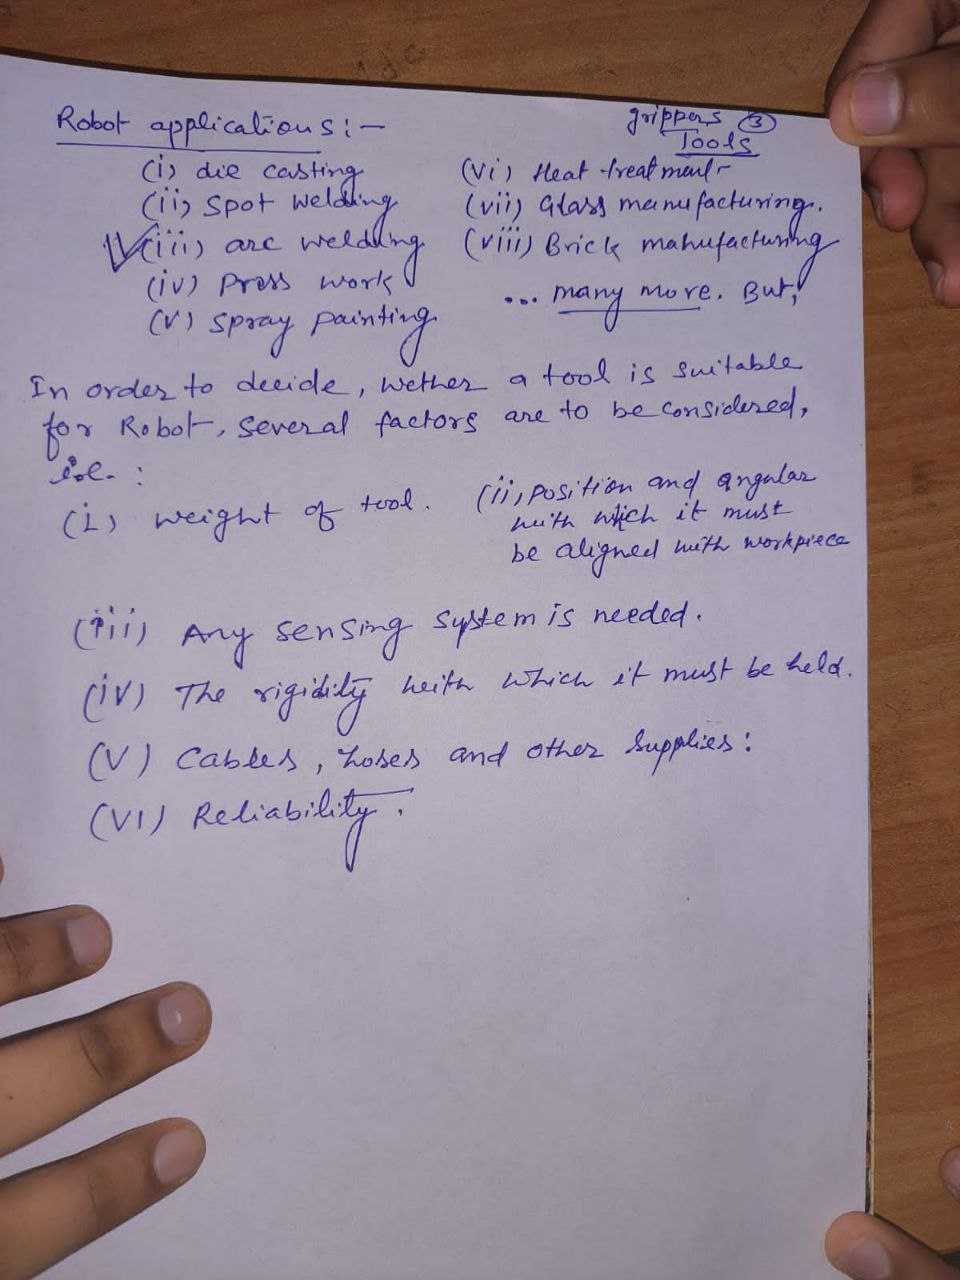 grippers ③
Tools
Robot applications :-
(i) die casting
(ii) spot welding
(iii) arc welding
(iv) press work
(v) spray painting
(vi) Heat treatment
(vii) Glass manufacturing.
(viii) Brick manufacturing
... many more. But,
In order to decide, wether a tool is suitable
for Robot, several factors are to be considered,
i.e. :
(i) weight of tool.
(ii) position and angular
with which it must
be aligned with workpiece
(iii) Any sensing system is needed.
(iv) The rigidity with which it must be held.
(v) Cables, hoses and other supplies:
(vi) Reliability.